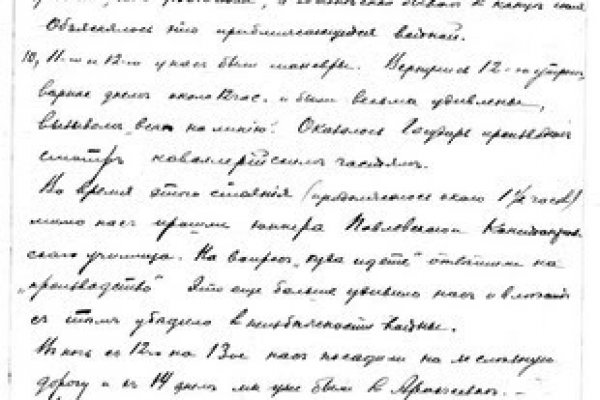 Объяснялось это приближающейся войной.
10, 11-го и 12-го у нас были маневры. Вернулись 12-го утром,
вернее днем около 12 час. и были весьма удивлены,
вызовом "всех на линию". Оказалось Государь производил
смотр кавалерийским частям.
Во время этого стояния (продолжалось около 1½ часов)
мимо нас прошли юнкера Павловского
ского училища. На вопрос "куда идете" отвечали на
"производство" Это еще больше удивило нас и
с тем убедило в неизбежности войны.
В ночь с 12го на 13ое нас посадили на железную
дорогу и в 14 днем мы уже были в